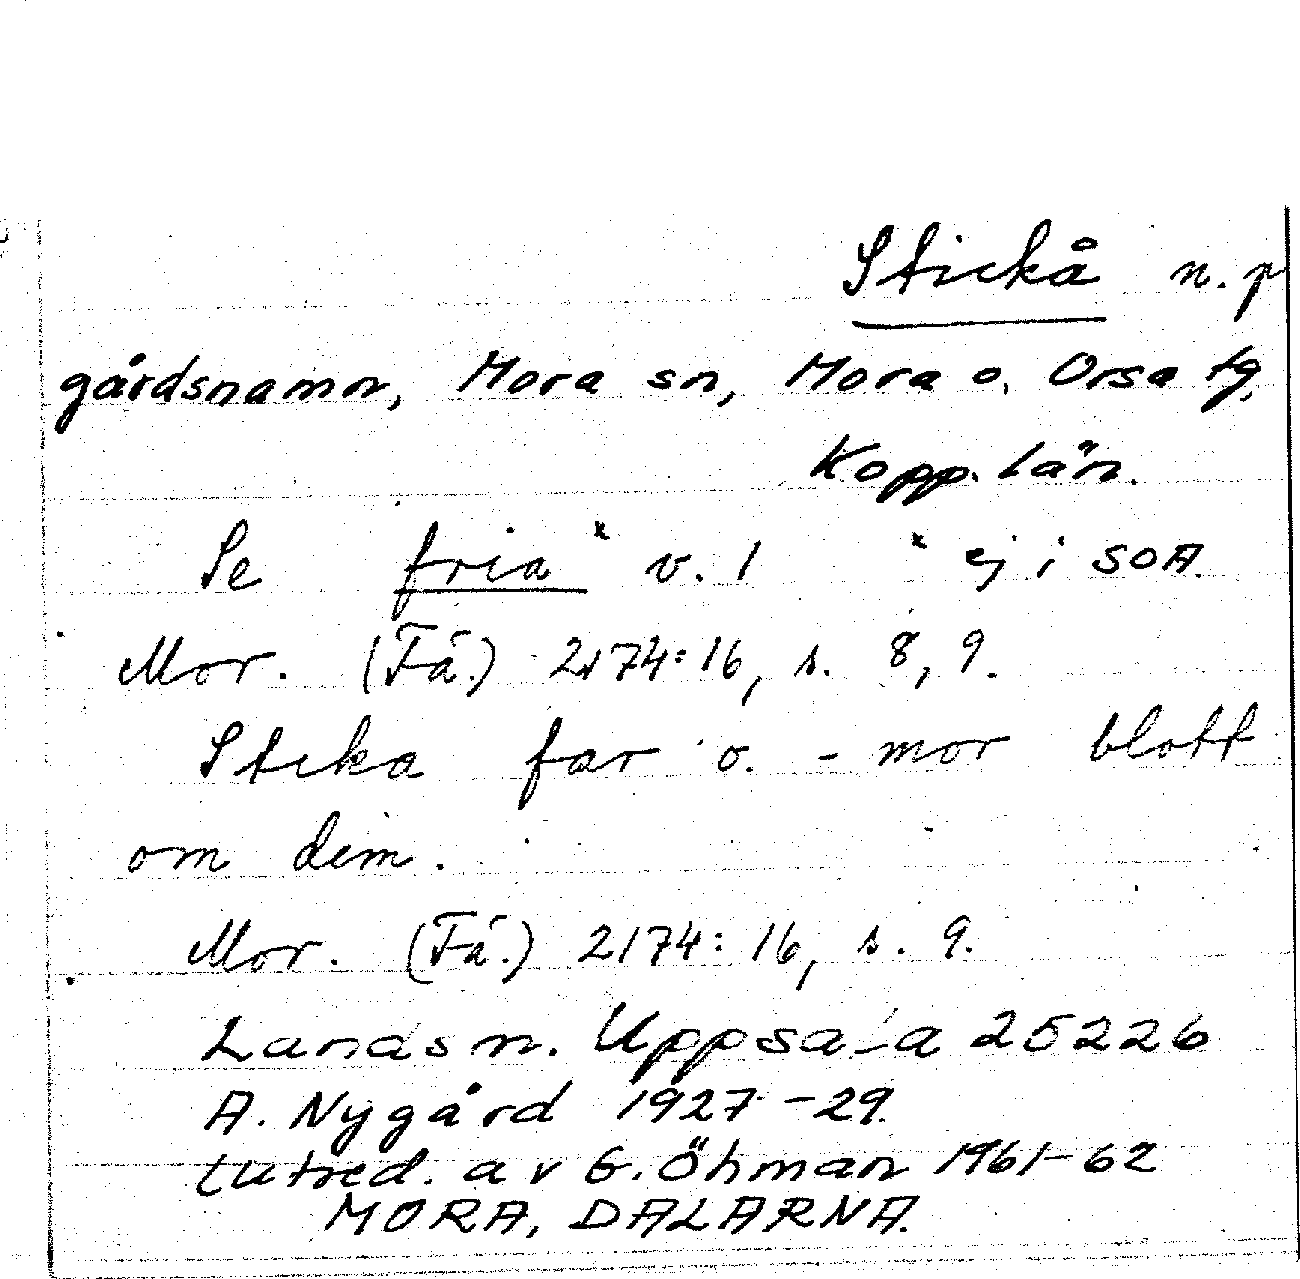 Stickå n. p
gårdsnamn, Mora sn, Mora o. Orsa tg,
Kopp. län.
Se fria x v. 1 x ej i SOA.
Mor. (Få.) 2174:16, s. 8, 9.
Sticka far o. - mor blott
om dem.
Mor. (Få.) 2174:16, s. 9.
Landsm. Uppsala 25226
A. Nygård 1927-29.
(utred. av G. Öhman 1961-62
MORA, DALARNA.